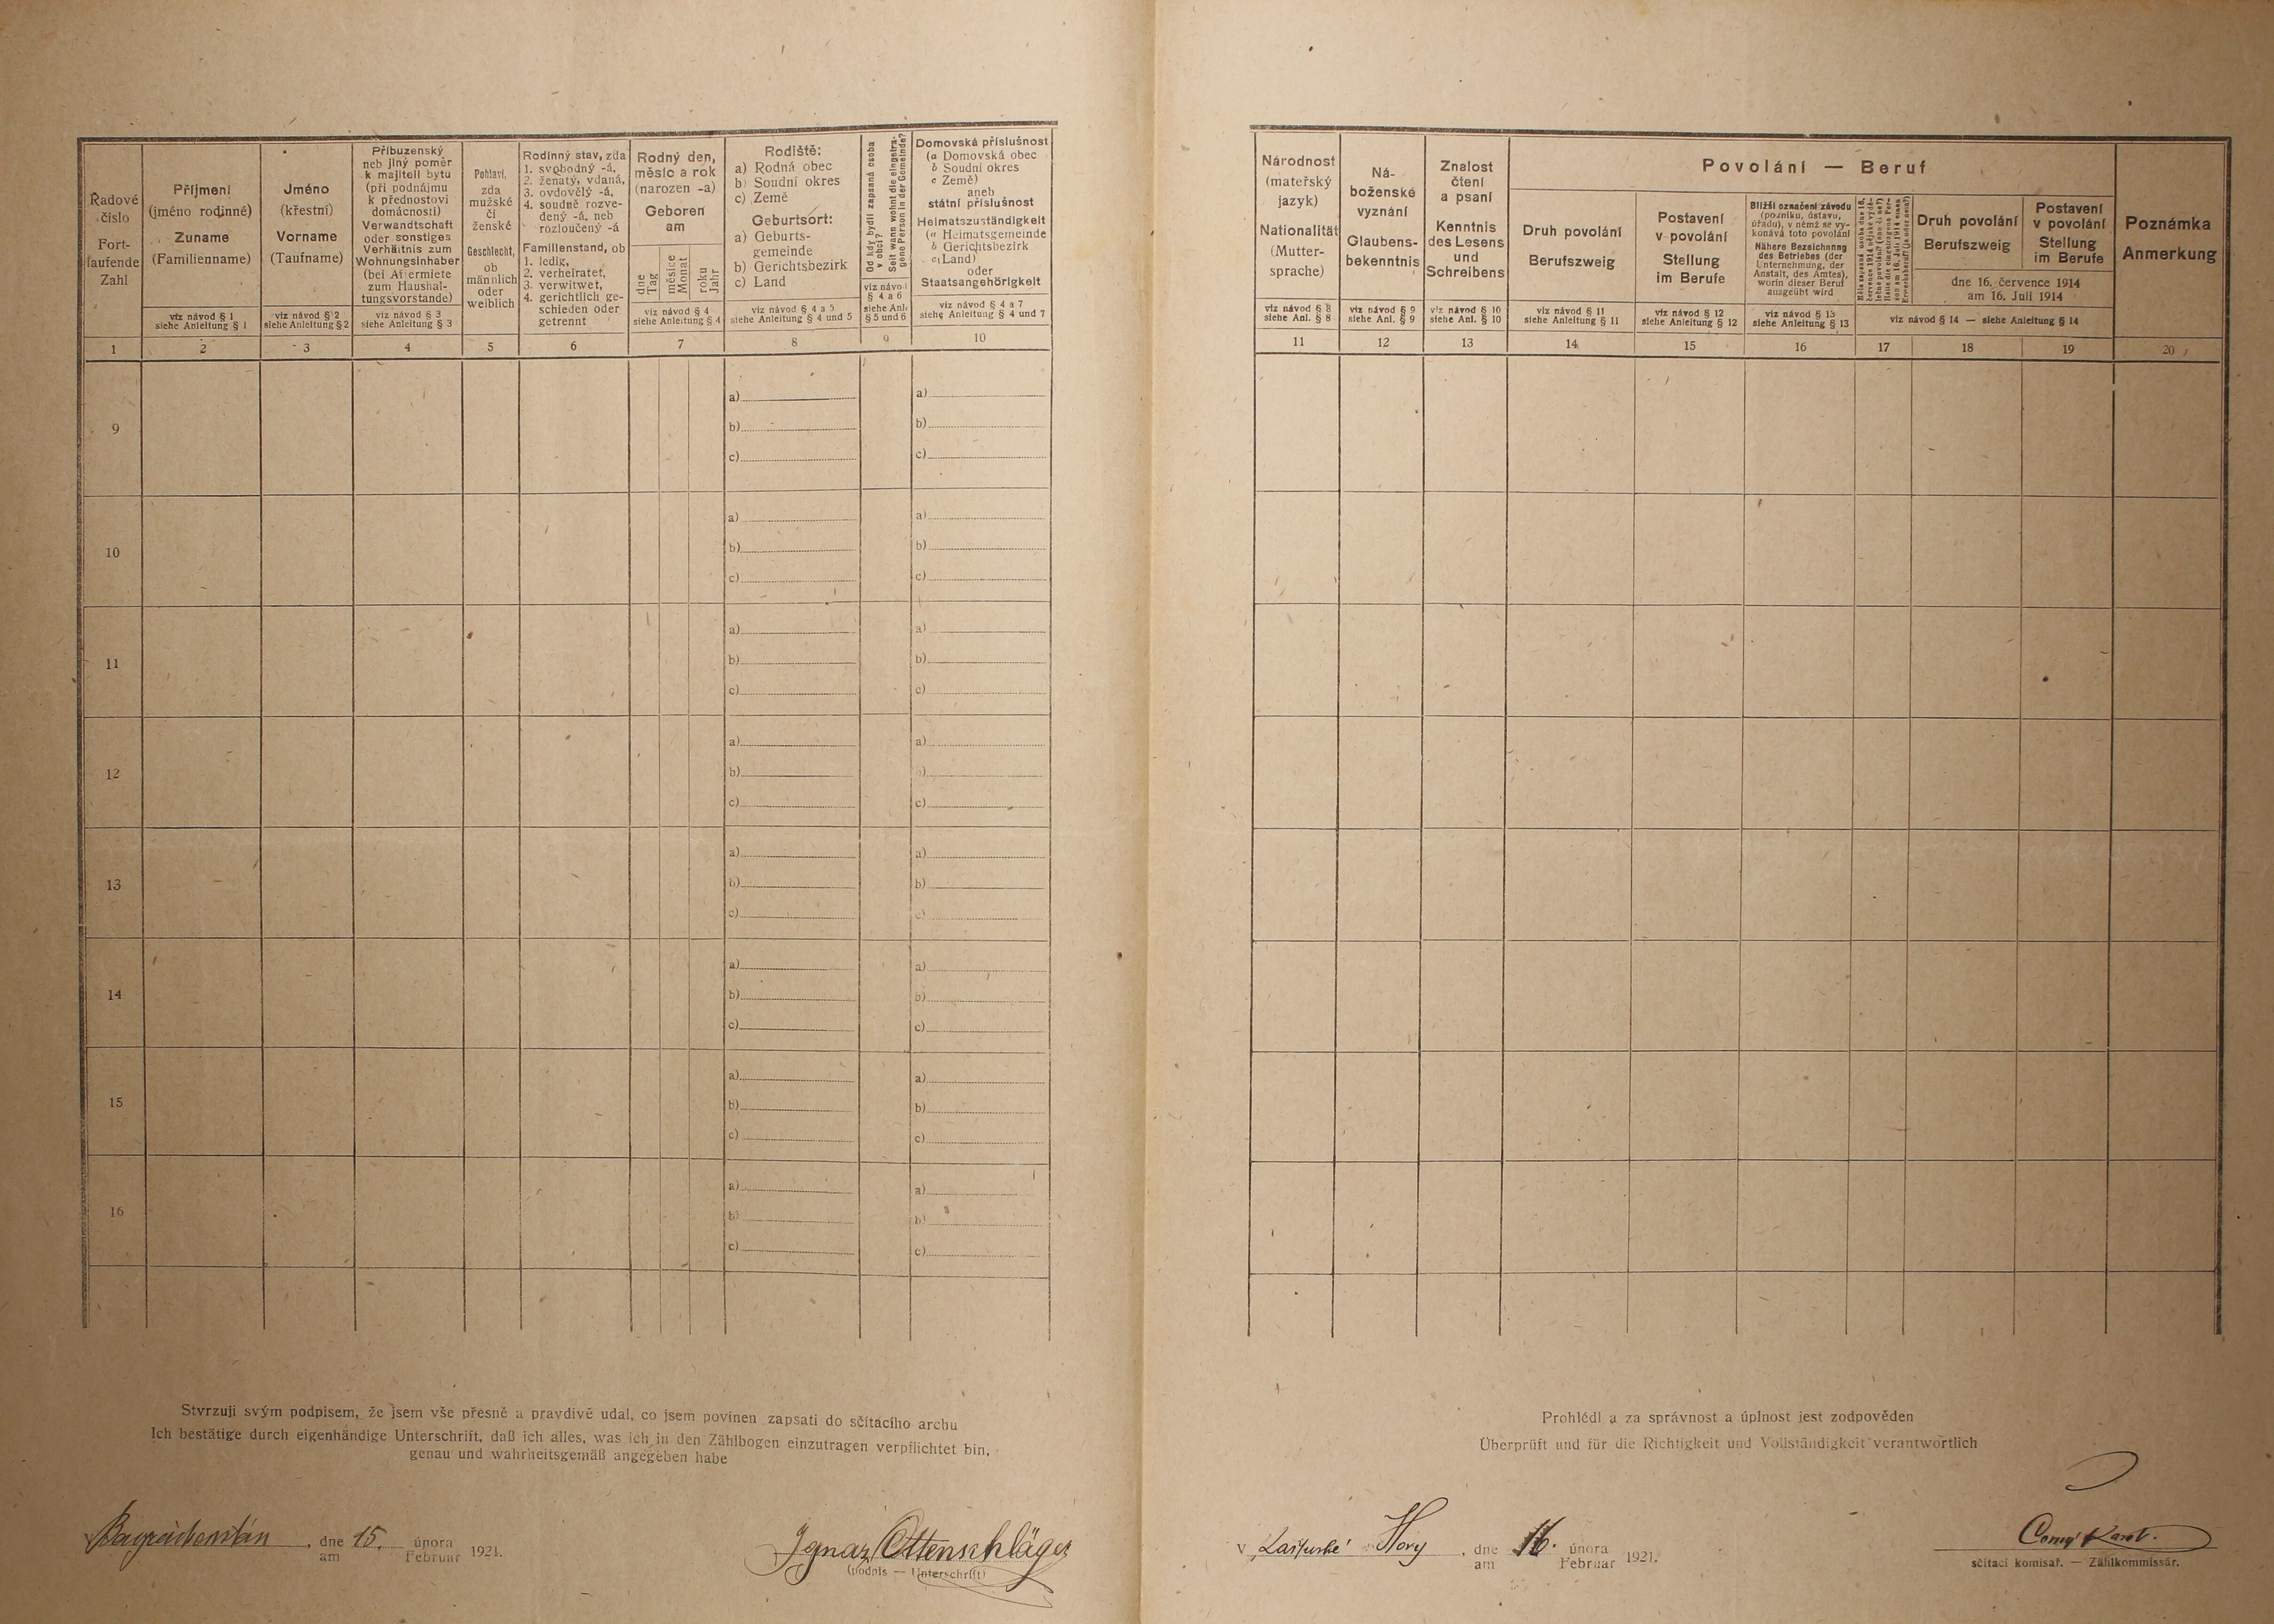 Řadové
číslo
Fort-
laufende
Zahl
1
Příjmení
(jméno rodinné)
Zuname
(Familienname)
viz návod § 1
siehe Anleitung § 1
2
Jméno
(křestní)
Vorname
(Taufname)
viz návod § 2
siehe Anleitung § 2
3
Příbuzenský
neb jiný poměr
k majiteli bytu
(při podnájmu
k přednostovi
domácnosti)
Verwandtschaft
oder sonstiges
Verhältnis zum
Wohnungsinhaber
(bei Aftermiete
zum Haushal-
tungsvorstande)
viz návod § 3
siehe Anleitung § 3
4
Pohlaví,
zda
mužské
či
ženské
Geschlecht,
ob
männlich
oder
weiblich
5
Rodinný stav, zda
1. svobodný -á,
2. ženatý, vdaná,
3. ovdovělý -á,
4. soudně rozve-
dený -á, neb
rozloučený -á
Familienstand, ob
1. ledig,
2. verheiratet,
3. verwitwet,
4. gerichtlich ge-
schieden oder
getrennt
6
Rodný den,
měsíc a rok
(narozen -a)
Geboren
am
dne
Tag
měsíce
Monat
roku
Jahr
viz návod § 4
siehe Anleitung § 4
7
Rodiště:
a) Rodná obec
b) Soudní okres
c) Země
Geburtsort:
a) Geburts-
gemeinde
b) Gerichtsbezirk
c) Land
viz návod § 4 a 5
siehe Anleitung § 4 und 5
8
Od kdy bydlí zapsaná osoba
v obci?
Seit wann wohnt die eingetra-
gene Person in der Gemeinde?
viz návod
§ 4 a 6
siehe Anl.
§ 5 und 6
9
Domovská příslušnost
(a Domovská obec
b Soudní okres
c Země)
aneb
státní příslušnost
Heimatszuständigkeit
(a Heimatsgemeinde
b Gerichtsbezirk
c Land)
oder
Staatsangehörigkeit
viz návod § 4 a 7
siehe Anleitung § 4 und 7
10
Národnost
(mateřský
jazyk)
Nationalität
(Mutter-
sprache)
viz návod § 8
siehe Anl. § 8
11
Ná-
boženské
vyznání
Glaubens-
bekenntnis
viz návod § 9
siehe Anl. § 9
12
Znalost
čtení
a psaní
Kenntnis
des Lesens
und
Schreibens
viz návod § 10
siehe Anl. § 10
13
Povolání — Beruf
Druh povolání
Berufszweig
viz návod § 11
siehe Anleitung § 11
14
Postavení
v povolání
Stellung
im Berufe
viz návod § 12
siehe Anleitung § 12
15
Bližší označení závodu
(podniku, ústavu,
úřadu), v němž se vy-
konává toto povolání
Nähere Bezeichnung
des Betriebes (der
Unternehmung, der
Anstalt, des Amtes),
worin dieser Beruf
ausgeübt wird
viz návod § 13
siehe Anleitung § 13
16
17
Druh povolání
Berufszweig
Postavení
v povolání
Stellung
im Berufe
dne 16. července 1914
am 16. Juli 1914
viz návod § 14 — siehe Anleitung § 14
18
19
Poznámka
Anmerkung
20
9
a)
b)
c)
a)
b)
c)
10
a)
b)
c)
a)
b)
c)
11
a)
b)
c)
a)
b)
c)
12
a)
b)
c)
a)
b)
c)
13
a)
b)
c)
a)
b)
c)
14
a)
b)
c)
a)
b)
c)
15
a)
b)
c)
a)
b)
c)
16
a)
b)
c)
a)
b)
c)
Stvrzuji svým podpisem, že jsem vše přesně a pravdivě udal, co jsem povinen zapsati do sčítacího archu
Ich bestätige durch eigenhändige Unterschrift, daß ich alles, was ich in den Zählbogen einzutragen verpflichtet bin,
genau und wahrheitsgemäß angegeben habe
dne 15. února
am Februar 1921.
Ignaz Ottenschläger
(podpis — Unterschrift)
Prohlédl a za správnost a úplnost jest zodpověden
Überprüft und für die Richtigkeit und Vollständigkeit verantwortlich
v Hory, dne 16. února
am Februar 1921.
sčítací komisař. — Zählkommissär.